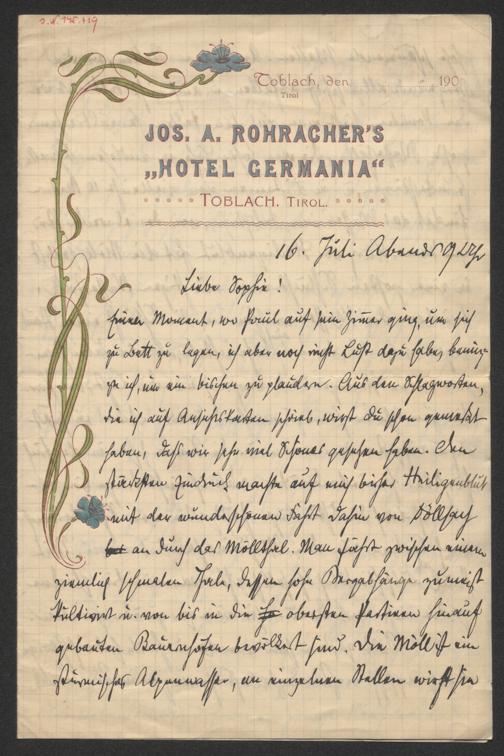 Toblach, den 190
Tirol
JOS. A. ROHRACHER'S
„HOTEL GERMANIA“
TOBLACH. TIROL.
16. Juli Abends 9 Uhr
Liebe Sophie!
Einen Moment, wo Paul auf sein Zimmer ging, um sich
zu Bett zu legen, ich aber noch nicht Lust dazu habe, benüt-
ze ich, um ein bischen zu plaudern. Aus den Schlagworten,
die ich auf Ansichtskarten schrieb, wirst du schon gemerkt
haben, daß wir sehr viel Schönes gesehen haben. Den
stärksten Eindruck machte auf mich bisher Heiligenblut
mit der wunderschönen Fahrt dahin von Dölsach
an durch das Möllthal. Man fährt zwischen einem
ziemlich schmalen Thale, dessen hohe Bergabhänge zumeist
kultivirt u. von bis in die obersten Partieen hinauf
gebauten Bauernhöfen bevölkert sind. Die Möll ist ein
stürmisches Alpenwasser, an einzelnen Stellen wirft sie